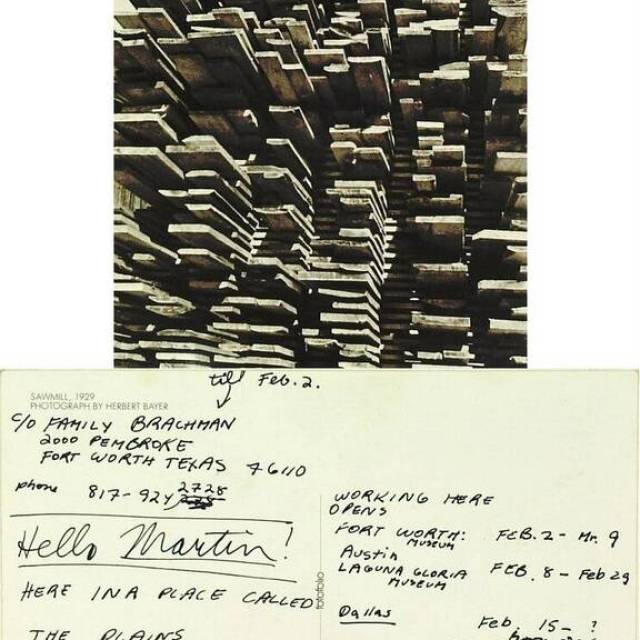 till Feb. 2.
SAWMILL, 1929
PHOTOGRAPH BY HERBERT BAYER
C/O FAMILY BRACHMAN
2000 PEMBROKE
FORT WORTH TEXAS 76110
phone 817-924 2728
Hello Martin!
HERE IN A PLACE CALLED
THE PLAINS
fotofolio
WORKING HERE
OPENS
FORT WORTH: FEB. 2 - Mr. 9
MUSEUM
Austin
LAGUNA GLORIA FEB. 8 - Feb 29
MUSEUM
Dallas Feb. 15 - ?